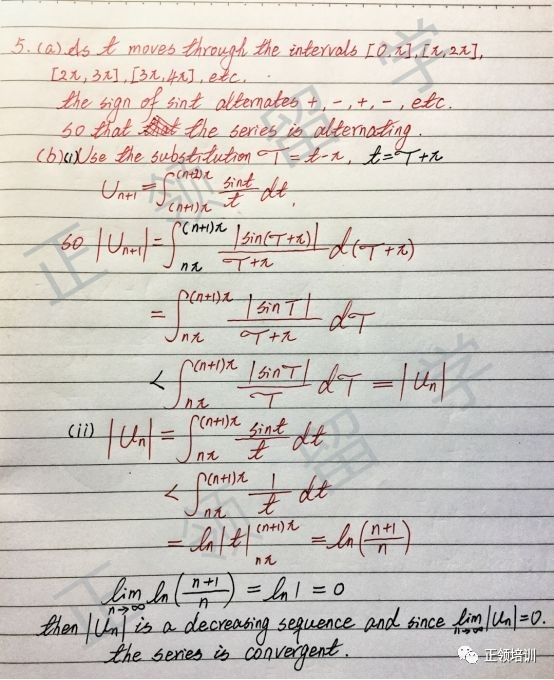 5. (a) As t moves through the intervals [0,π], [π,2π],
[2π,3π], [3π,4π], etc.
the sign of sint alternates +, -, +, -, etc.
so that the series is alternating.
(b)(i) Use the substitution T = t-π, t = T+π
U_{n+1} = ∫_{(n+1)π}^{(n+2)π} sint/t dt,
so |U_{n+1}| = ∫_{nπ}^{(n+1)π} |sin(T+π)|/(T+π) d(T+π)
= ∫_{nπ}^{(n+1)π} |sinT|/(T+π) dT
< ∫_{nπ}^{(n+1)π} |sinT|/T dT = |U_n|
(ii) |U_n| = ∫_{nπ}^{(n+1)π} sint/t dt
< ∫_{nπ}^{(n+1)π} 1/t dt
= ln|t| |_{nπ}^{(n+1)π} = ln((n+1)/n)
lim_{n→∞} ln((n+1)/n) = ln1 = 0
then |U_n| is a decreasing sequence and since lim_{n→∞}|U_n|=0.
the series is convergent.
正领留学
正领留学
正领培训